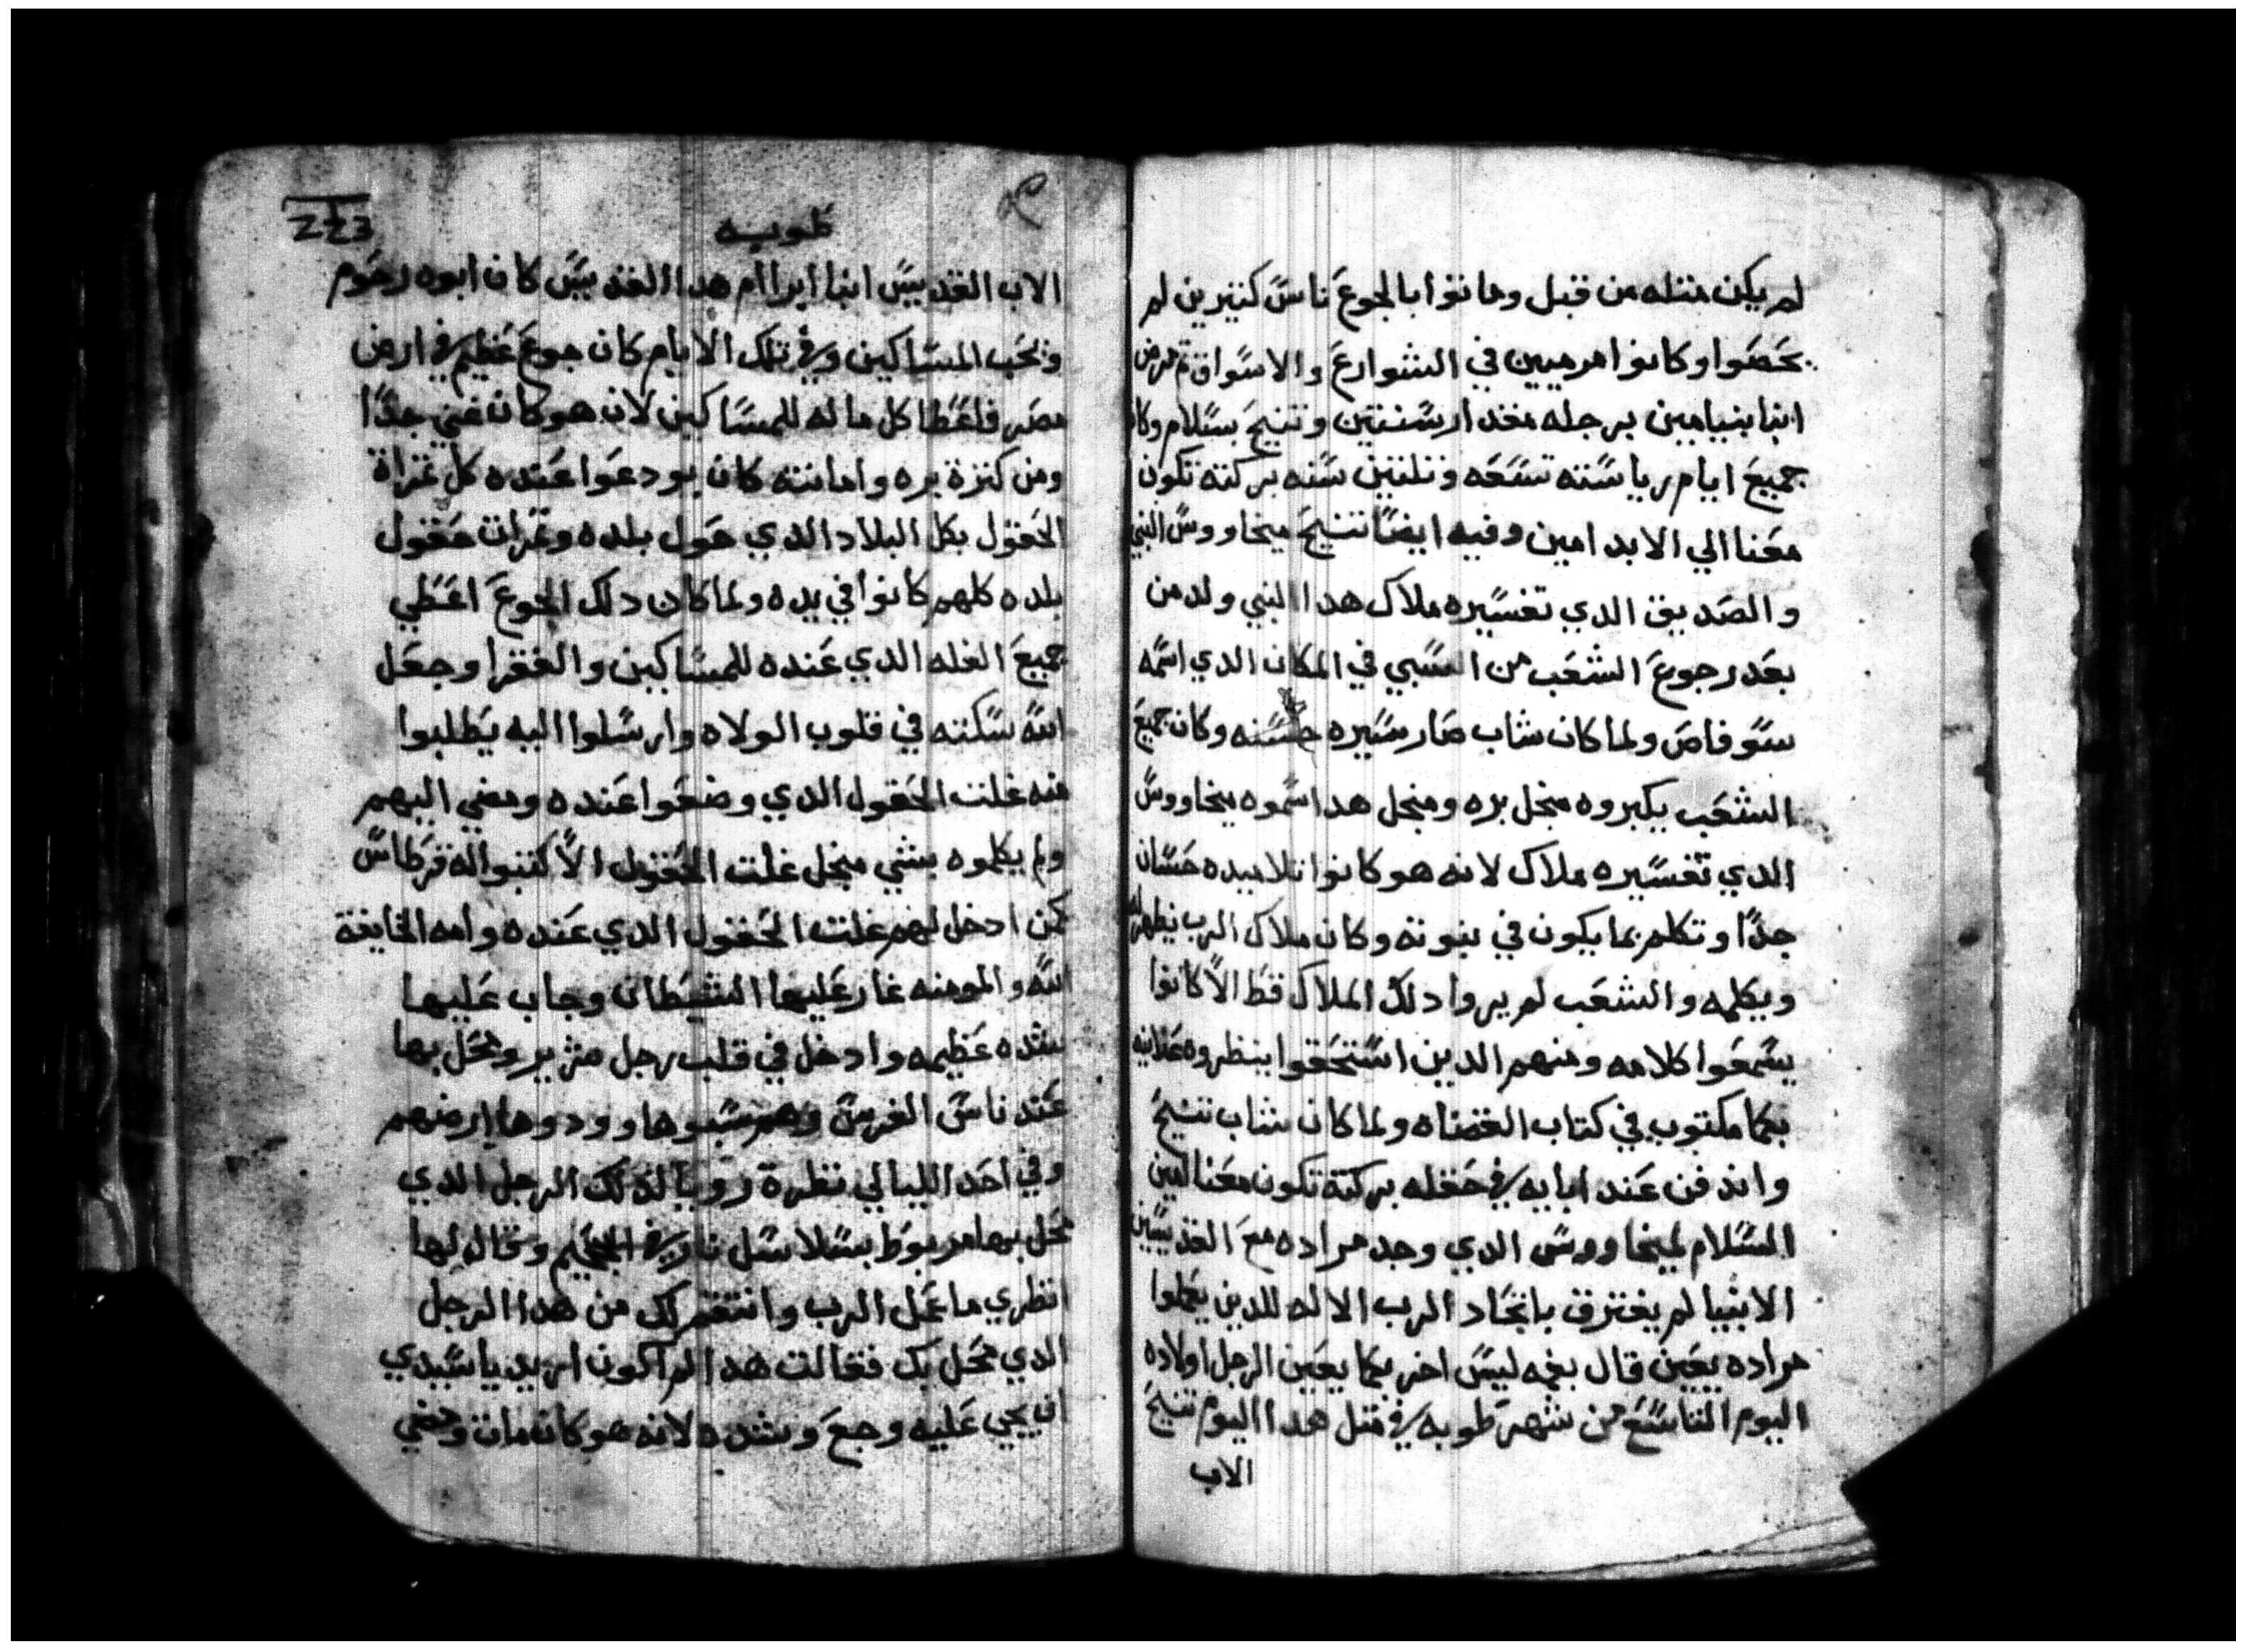 لم يكن متله من قبل وماتوا بالجوع ناس كتيرين لم
يحصوا وكانوا مرميين في الشوارع والاسواق تم مرض
انبا بنيامين برجله مقدار سنتين وتنيح بسلام وكان
جميع ايام رياسته تسعه وتلتين سنه بركته تكون
معنا الي الابد امين وفيه ايضا تنيح ميخاووس النبي
والصديق الدي تفسيره ملاك هدا النبي ولد من
بعد رجوع الشعب من السبي في المكان الدي اسمه
سوفاص ولما كان شاب صار سيره حسنه وكان جميع
الشعب يكبروه منجل بره ومنجل هدا سموه ميخاووس
الدي تفسيره ملاك لانه هو كانوا تلاميده حسان
جدا وتكلم بما يكون في نبوته وكان ملاك الرب يظهر له
ويكلمه والشعب لم يروا دلك الملاك قط الا كانوا
يسمعوا كلامه ومنهم الدين استحقوا ينظروه علانيه
بكما مكتوب في كتاب القضاه ولما كان شاب تنيح
واندفن عند ابايه في حقله بركته تكون معنا امين
السلام لميخاووس الدي وجد مراده مع القديسين
الانبيا لم يفترق باتحاد الرب الاله للدين يعملوا
مراده يعين قال بفمه ليس اخر بكما يعين الرجل اولاده
اليوم التاسع من شهر طوبه في متل هدا اليوم تنيح
الاب
طوبه
الاب القديس انبا ابراام هدا القديس كان ابوه رحوم
ويحب المساكين وفي تلك الايام كان جوع عظيم في ارض
مصر فاعطا كل ماله للمساكين لان هو كان غني جدا
ومن كترة بره وامانته كان يودعوا عنده كل تمراة
الحقول بكل البلاد الدي حول بلده وتمرات حقول
بلده كلهم كانوا في يده ولما كان دلك الجوع اعطي
جميع الغله الدي عنده للمساكين والفقرا وجعل
الله سكته في قلوب الولاه وارسلوا اليه يطلبوا
منه غلت الحقول الدي وضعوا عنده ومضي اليهم
ولم يكلموه بشي منجل غلت الحقول الا كتبوا له قرطاس
كمن ادخل لهم غلت الحقول الدي عنده وامه الخايفة
الله والمومنه غار عليها الشيطان وجاب عليها
شده عظيمه وادخل في قلب رجل شرير ومحل بها
عند ناس الفرس وهم سبوها وودوها ارضهم
وفي احد الليالي نظرة رويا لدلك الرجل الدي
محل بها مربوط بسلاسل نار في الجحيم وقال لها
انظري ما عمل الرب وانتقم لك من هدا الرجل
الدي محل بك فقالت هدا لم اكون اريد ياسيدي
ان يجي عليه وجع وشده لانه هو كان مات ومضي